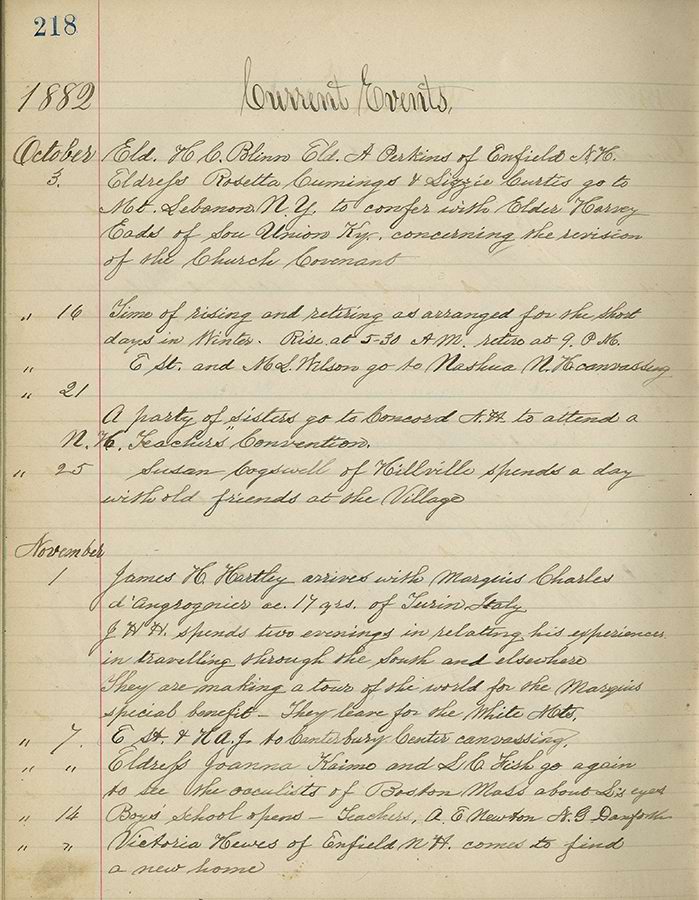 218
1882 Current Events.
October Eld. H C. Blinn Eld. A Perkins of Enfield N.H.
3. Eldress Rosetta Cumings & Lizzie Curtis go to
Mt. Lebanon N.Y. to confer with Elder Harvey
Eads of Sou Union Ky. concerning the revision
of the Church Covenant
" 16 Time of rising and retiring as arranged for the short
days in Winter. Rise at 5-30 A.M. retire at 9. P.M.
" E St. and M L. Wilson go to Nashua N.H canvassing
" 21
A party of sisters go to Concord N.H. to attend a
N.H. Teachers" Convention.
" 25 Susan Cogswell of Hillville spends a day
with old friends at the Village
November
1 James H. Hartley arrives with Marquis Charles
d'Angrognier ae. 17 yrs. of Turin Italy
J H H. spends two evenings in relating his experiences
in travelling through the South and elsewhere
They are making a tour of the world for the Marquis
special benefit - They leave for the White Mts.
" 7. E St. & H A. J. to Canterbury Center canvassing.
" " Eldress Joanna Kaime and L C. Fish go again
to see the occulists of Boston Mass about L's eyes
" 14 Boy's school opens - Teachers, A. E Newton N. G Danforth
" " Victoria Hewes of Enfield N H. comes to find
a new home